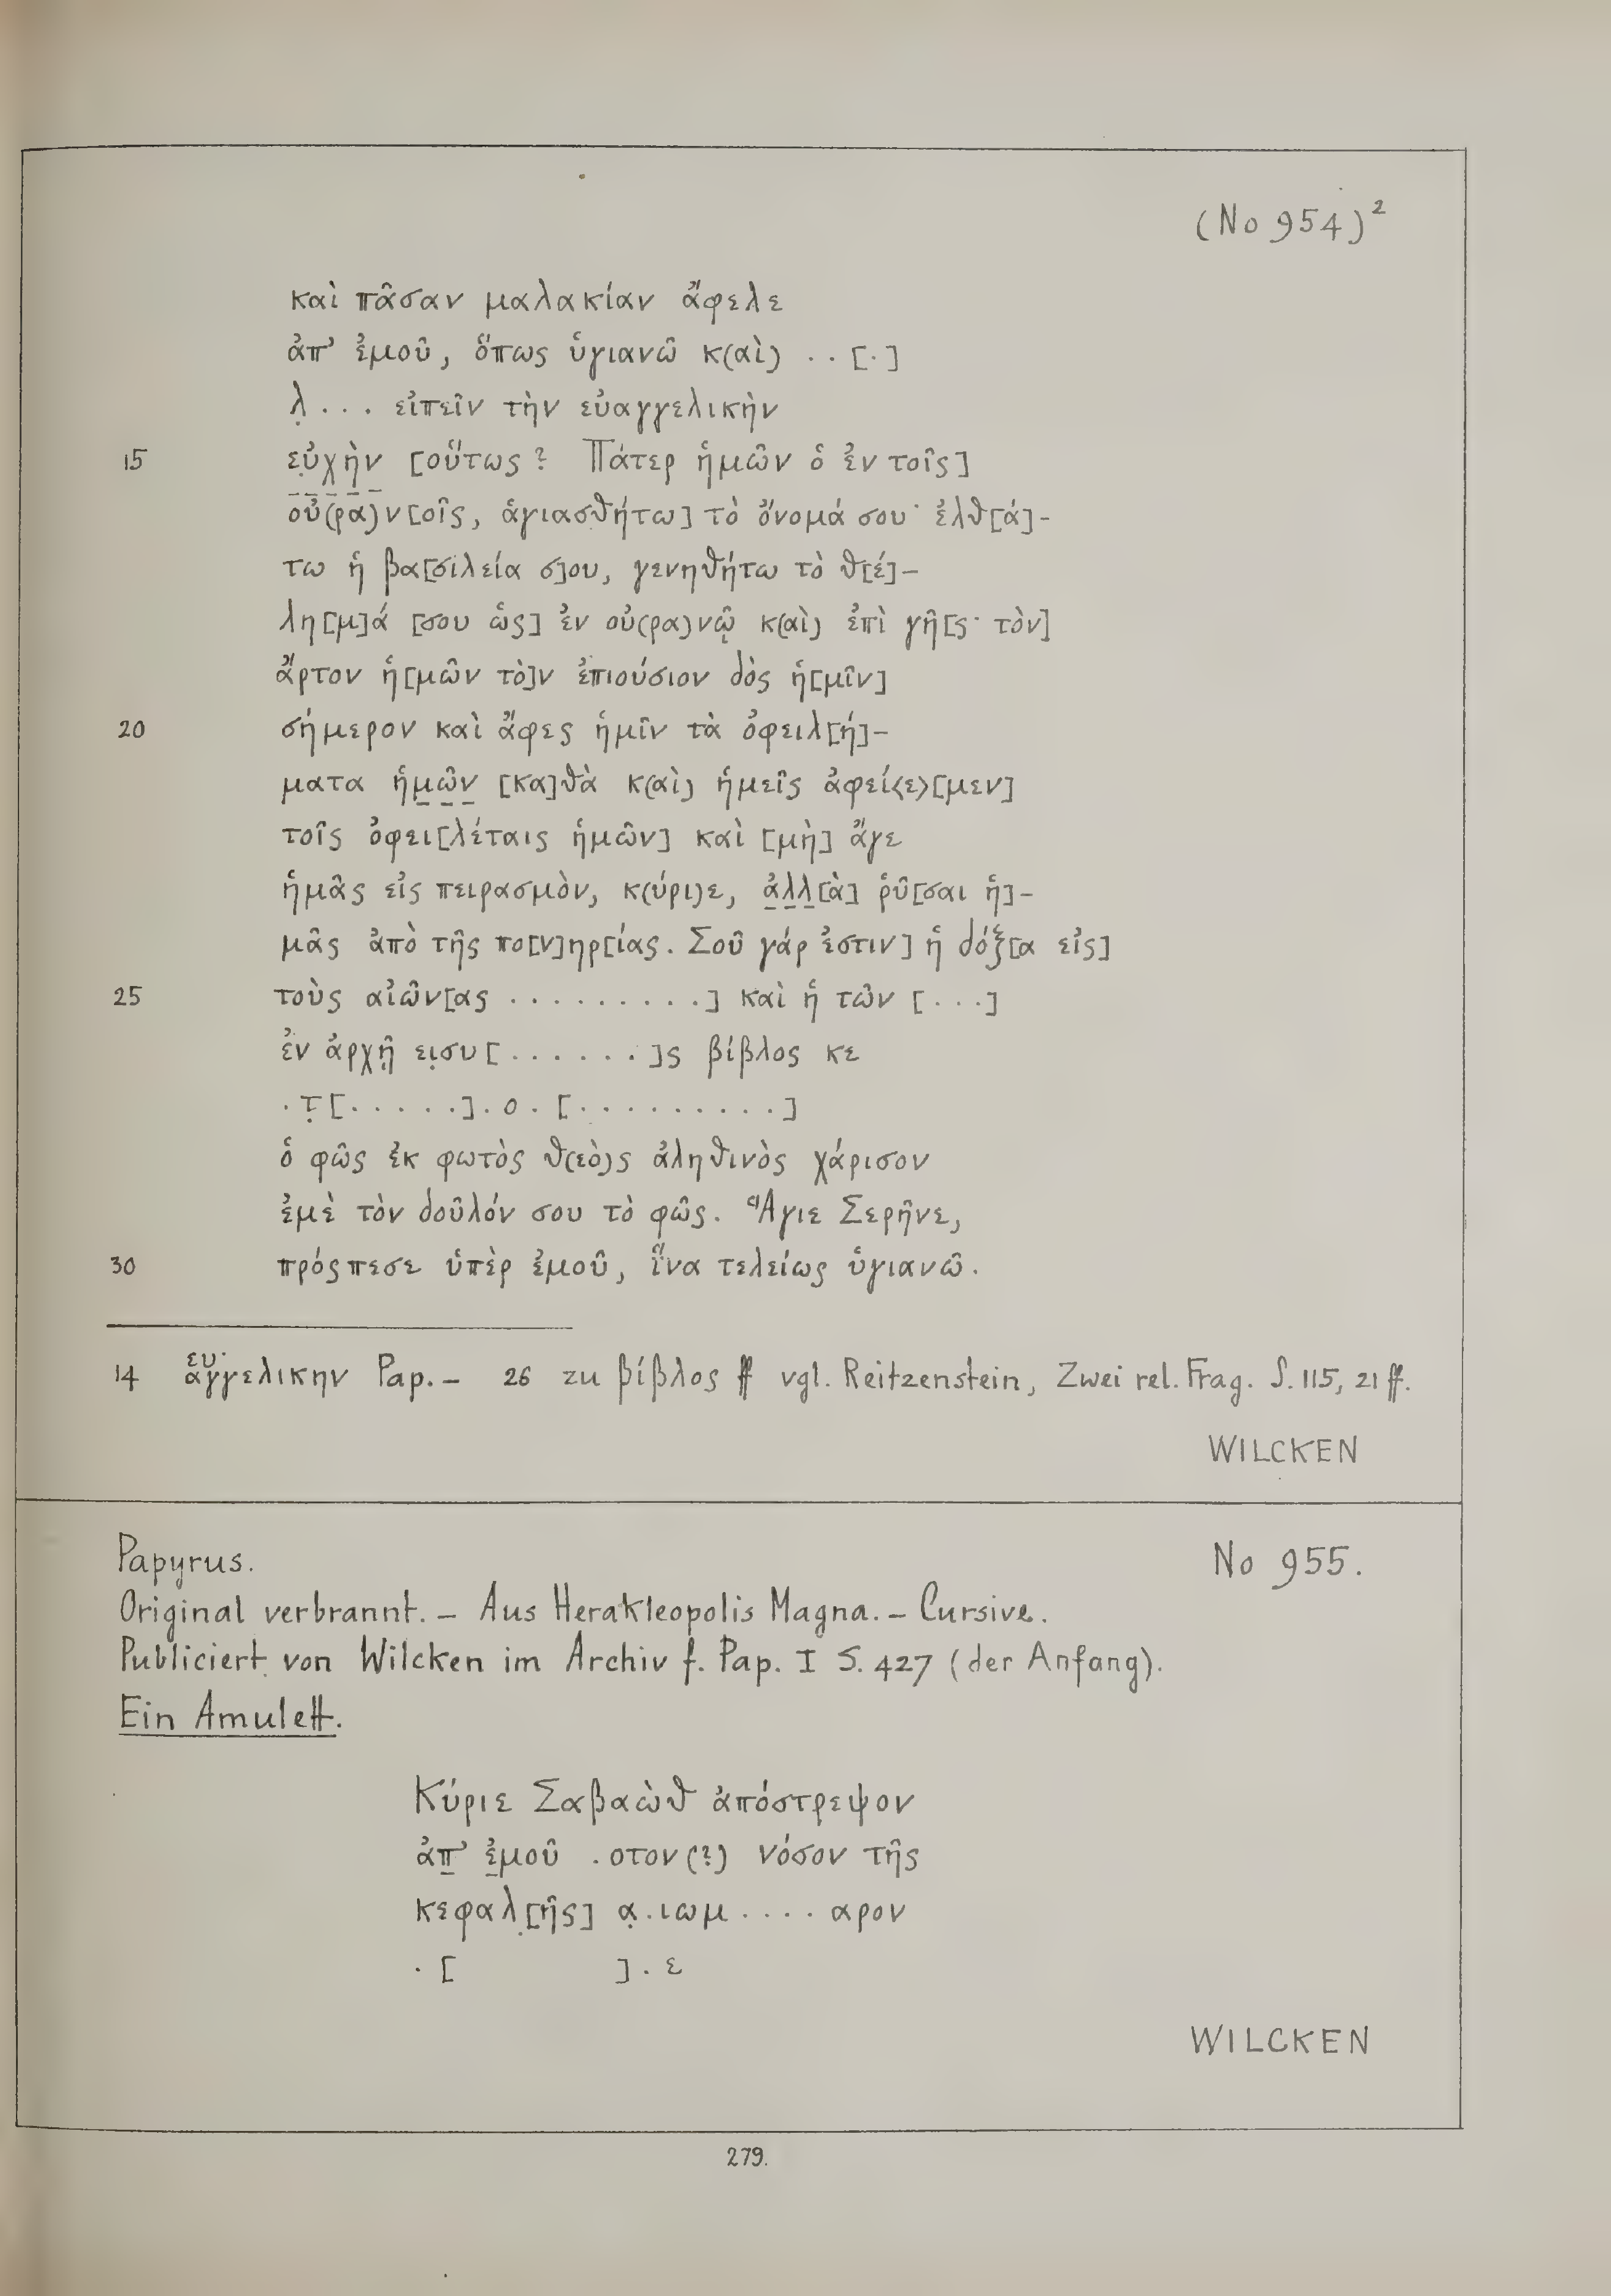 (No 954)²
καὶ πᾶσαν μαλακίαν ἄφελε
ἀπ’ ἐμοῦ, ὅπως ὑγιανῶ κ(αὶ) . . [.]
λ̣ . . . εἰπεῖν τὴν εὐαγγελικὴν
15 ε̣ὐχὴν [οὕτως? Πάτερ ἡμῶν ὁ ἐν τοῖς]
οὐ(ρα)ν[οῖς, ἁγιασθήτω] τὸ ὄνομά σου· ἐλθ[ά]-
τω ἡ βα[σιλεία σ]ου, γενηθήτω τὸ θ[έ]-
λη[μ]ά [σου ὡς] ἐν οὐ(ρα)νῷ κ(αὶ) ἐπὶ γῆ[ς· τὸν]
ἄρτον ἡ[μῶν τὸ]ν ἐπιούσιον δὸς ἡ[μῖν]
20 σήμερον καὶ ἄφες ἡμῖν τὰ ὀφειλ[ή]-
ματα ἡμῶν [κα]θὰ κ(αὶ) ἡμεῖς ἀφεί<ε>[μεν]
τοῖς ὀφει[λέταις ἡμῶν] καὶ [μὴ] ἄγε
ἡμᾶς εἰς πειρασμὸν, κ(ύρι)ε, ἀλλ[ὰ] ῥῦ[σαι ἡ]-
μᾶς ἀπὸ τῆς πο[ν]ηρ[ίας. Σοῦ γάρ ἐστιν] ἡ δόξ[α εἰς]
25 τοὺς αἰῶν[ας . . . . . . . . .] καὶ ἡ τῶν [. . .]
ἐν ἀρχῇ ει̣συ[. . . . . . .]ς βίβλος κε
. τ̣[. . . . .] . ο . [. . . . . . . . .]
ὁ φῶς ἐκ φωτὸς θ(εὸ)ς ἀληθινὸς χάρισον
ἐμὲ τὸν δοῦλόν σου τὸ φῶς. Ἅγιε Σερῆνε,
30 πρόςπεσε ὑπὲρ ἐμοῦ, ἵνα τελείως ὑγιανῶ.
ευ
14 αγγελικην Pap. – 26 zu βίβλος ff vgl. Reitzenstein, Zwei rel. Frag. S. 115, 21 ff.
WILCKEN
Papyrus. No 955.
Original verbrannt. – Aus Herakleopolis Magna. – Cursive.
Publiciert von Wilcken im Archiv f. Pap. I S. 427 (der Anfang).
Ein Amulett.
Κύριε Σαβαὼθ ἀπόστρεψον
ἀπ’ ἐμοῦ . οτον(?) νόσον τῆς
κεφαλ̣[ῆς] α̣ . ιωμ . . . . αρον
. [ ] . ε
WILCKEN
279.